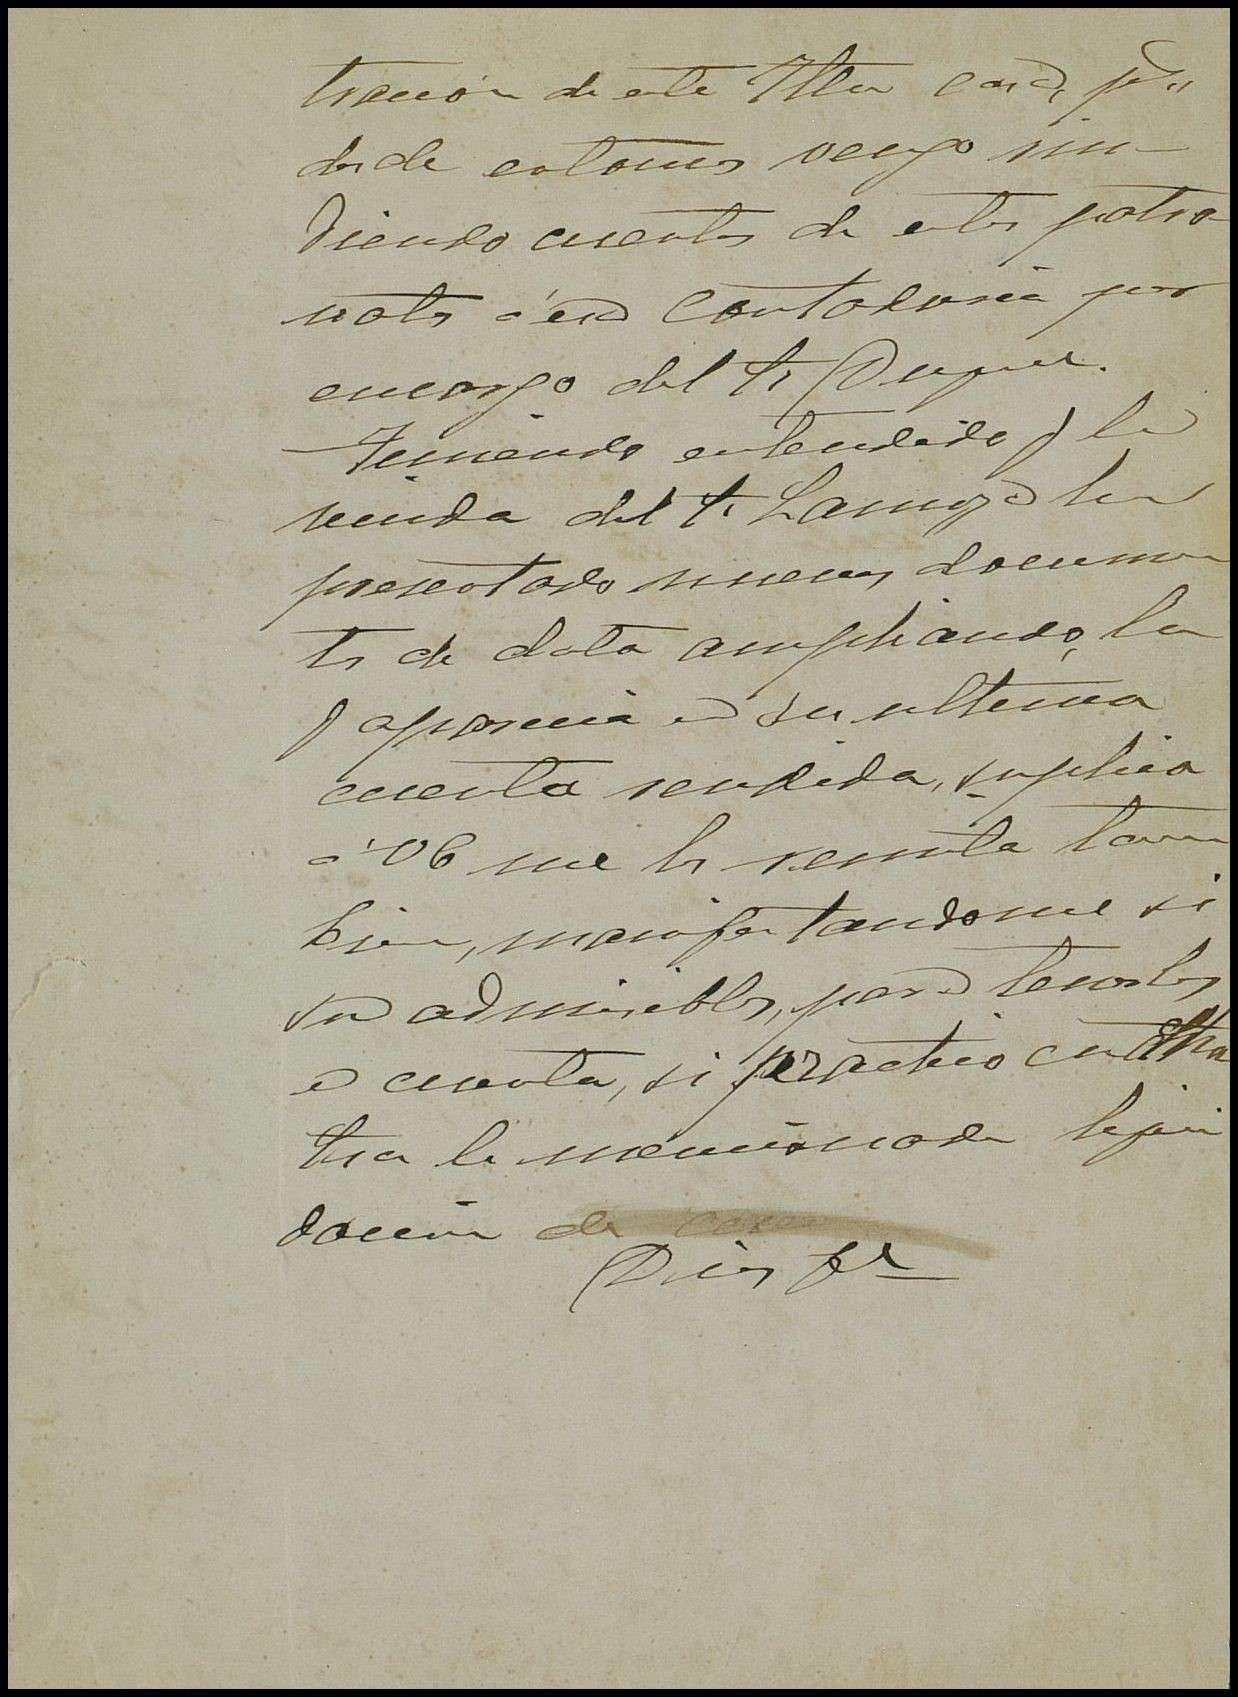 tración de esta Iltre casa, pues
desde entonces vengo rin-
diendo cuentas de estos patro
natos á esa Contaduria por
encargo del Sr Duque.
Teniendo entendido q la
viuda del Sr Lamoza ha
presentado nuevos documen
ts de data ampliando, la
q aparecia en su ultima
cuenta rendida, suplico
á Vd me ls remita tam
bien, manifestandome si
son admisibles, para tenerlos
en cuenta, si practico en
tra la mencionada liqui
dación de casa
Dios gue